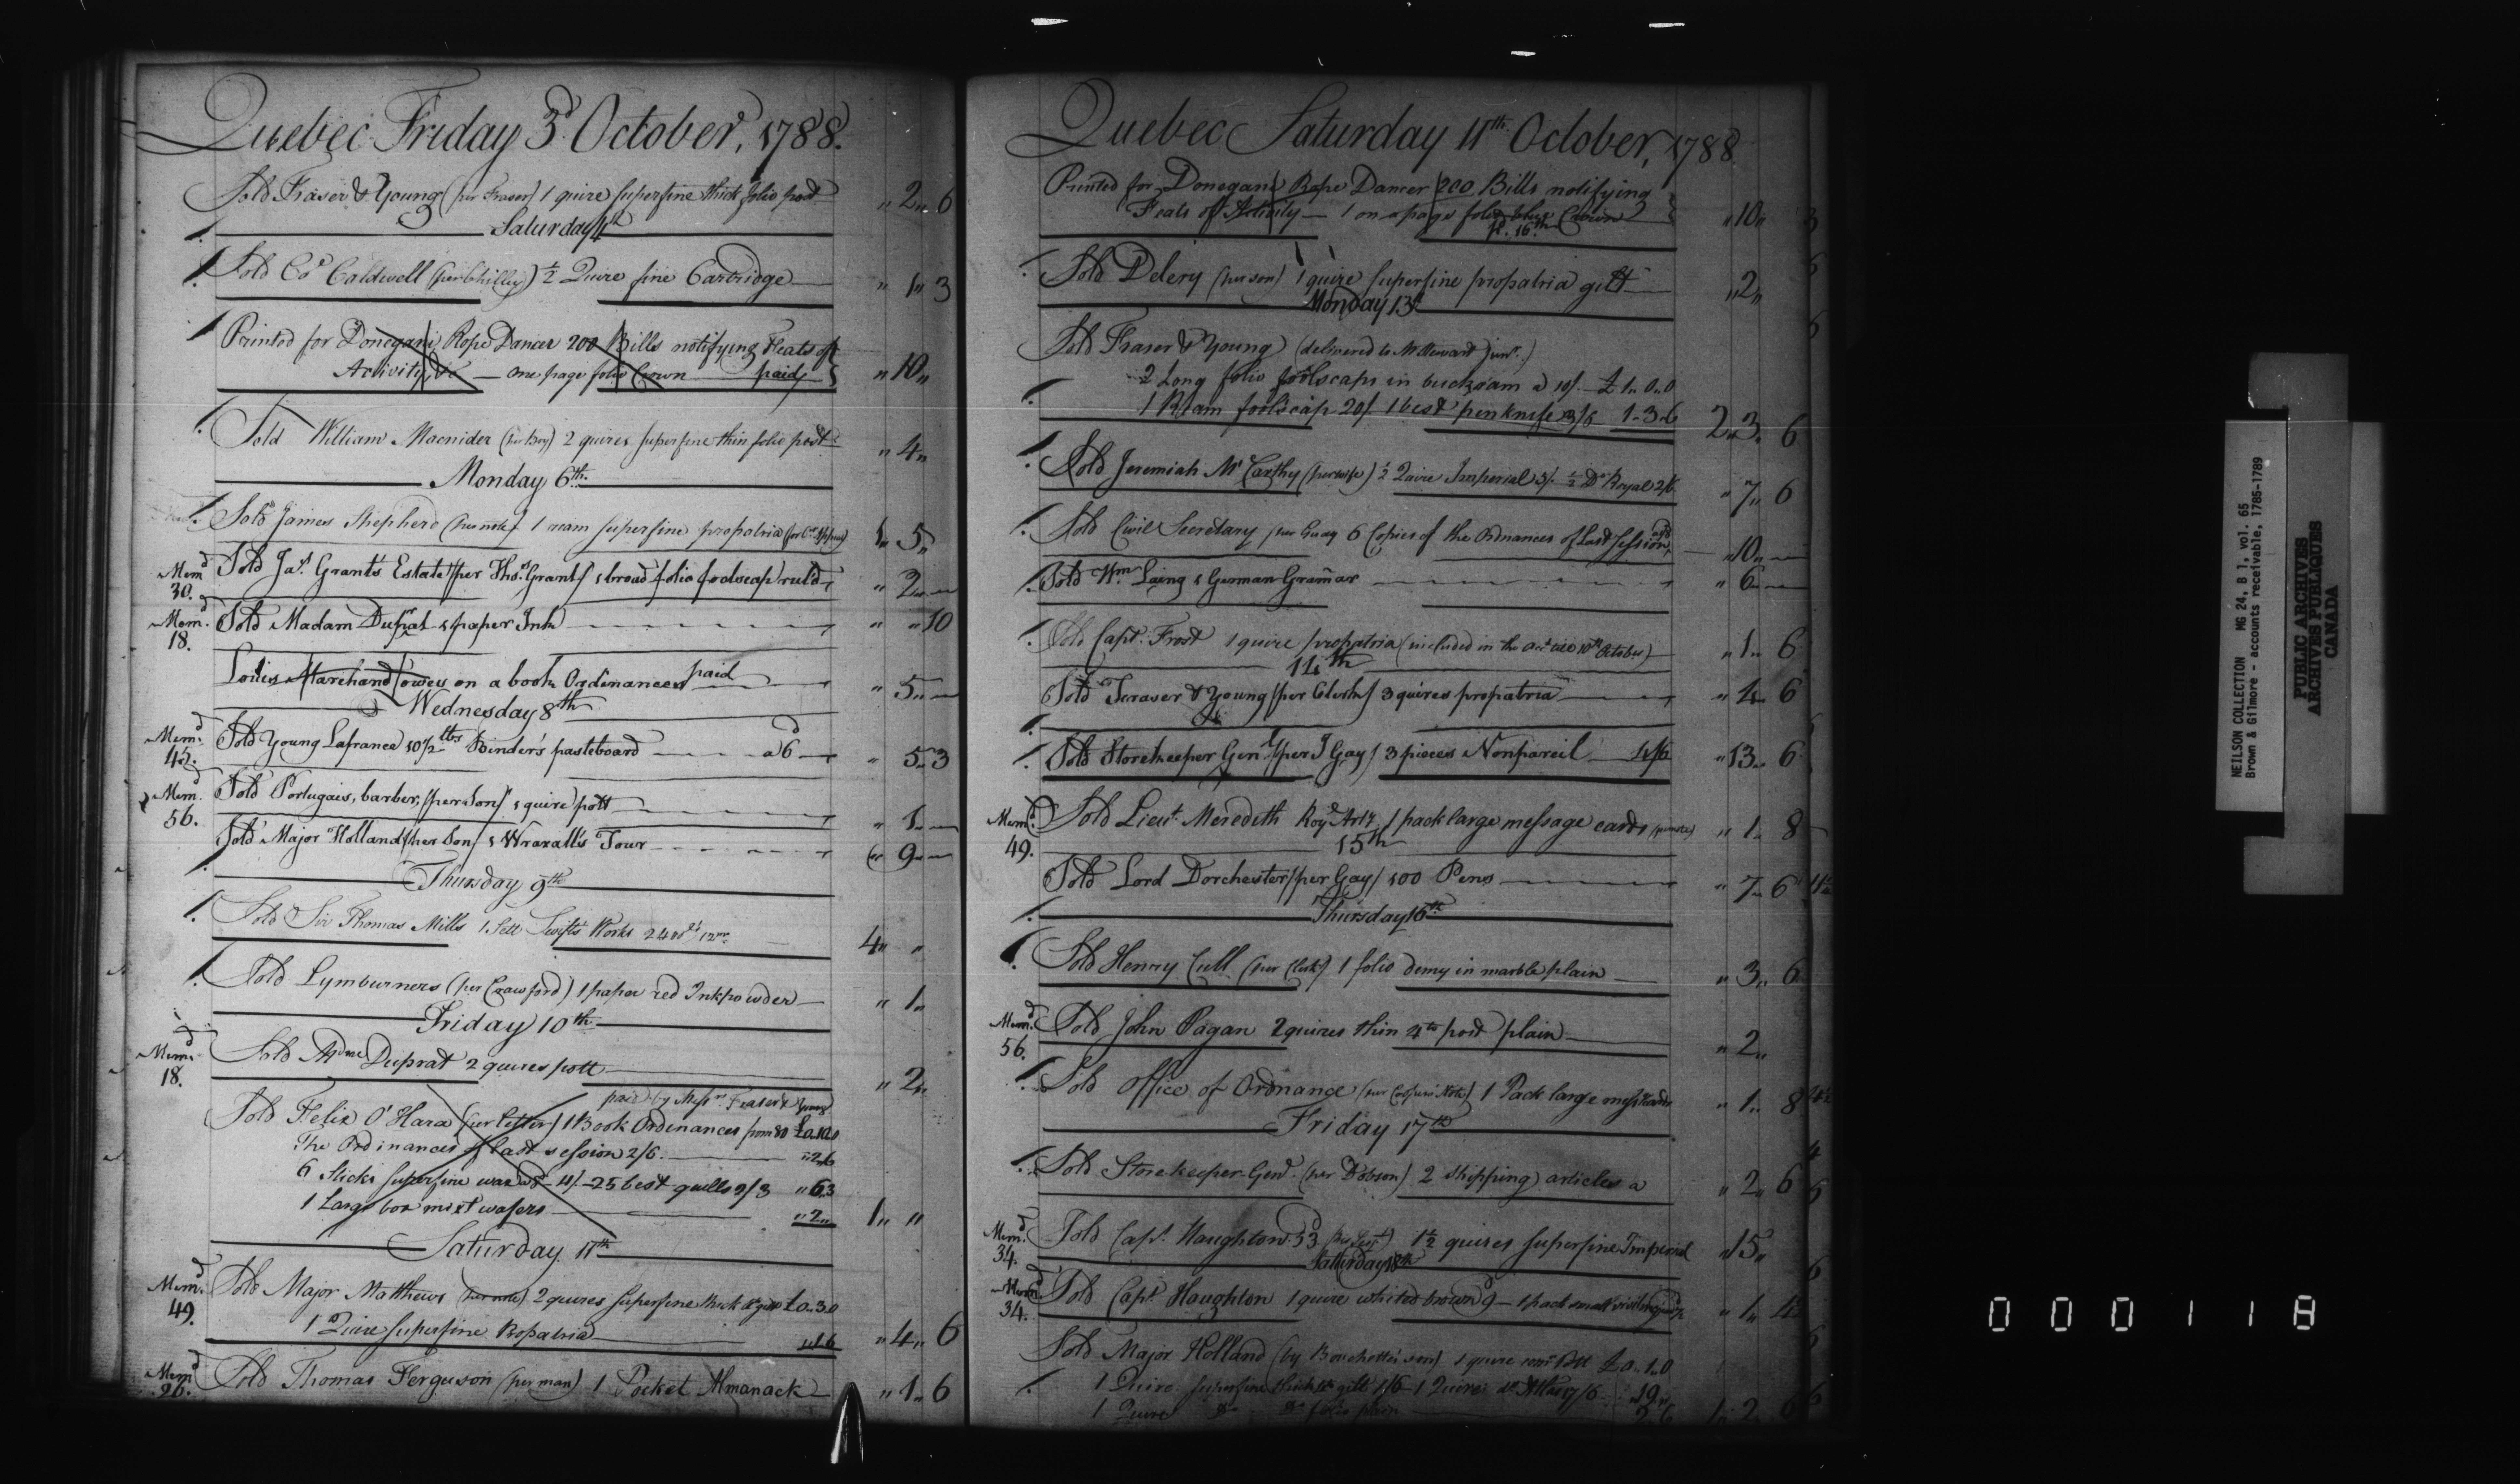 Quebec Friday 3d October, 1788.
Sold Fraser & Young (per Fraser) 1 quire superfine thick folio post „ 2„ 6
Saturday 4th
Sold Co. Caldwell ½ Quire fine Cartridge „ 1„ 3
Printed for Donegani Rope Dancer 200 Bills notifying Feats of
Activity, &c — one page folio Crown paid „ 10„
Sold William Macnider (per Boy) 2 quires superfine thin folio post „ 4„
Monday 6th.
Sold James Shepherd (per note) 1 ream superfine propatria 1„ 5„
Memd 30. Sold Jas. Grant's Estate /per Thos. Grant/ 1 broad folio foolscap ruld „ 2„ —
Memd. 18. Sold Madam Duprat 1 paper Ink „ „ 10
Louis Marchand owes on a book Ordinances paid „ 5„ —
Wednesday 8th
Memd. 45. Sold Young Lafrance 10½ lbs Binder's pasteboard a 6d „ 5„ 3
Memd. 56. Sold Portugais, barber, /per Son/ 1 quire pott „ 1„ —
Sold Major Holland /per Son/ 1 Wraxall's Tour „ 9„ —
Thursday 9th
Sold Sir Thomas Mills 1 Sett Swift's Works 24 vols. 12mo. 4„ „
Sold Lymburners (per Crawford) 1 paper red Inkpowder „ 1„
Friday 10th
Memd. 18. Sold Mdme Duprat 2 quires pott „ 2„
paid by Messrs Fraser & Young
Sold Felix O'Hara (per letter) 1 Book Ordinances from 80 £0.10.0
The Ordinances of last session 2/6 „ 2.6
6 Sticks superfine wax 4/. — 25 best quills 2/3 „ 6.3
1 Large box mixt wafers „ 2„ 1„ „
Saturday 11th
Memd. 49. Sold Major Matthews (per note) 2 quires superfine thick 4to gilt £0.3.0
1 Quire superfine Propatria „ 1.6 „ 4„ 6
Memd 26. Sold Thomas Ferguson (per man) 1 Pocket Almanack „ 1„ 6
Quebec Saturday 11th October, 1788
Printed for Donegani Rope Dancer 200 Bills notifying
Feats of Activity — 1 on a page folio blue Crown „ 10„
p. 16th
Sold Delery (per son) 1 quire superfine propatria gilt „ 2„
Monday 13th
Sold Fraser & Young (delivered to Mr Steward junr.)
2 Long folio foolscaps in buckram a 10/. £1„0„0
1 Ream foolscap 20/. 1 best penknife 3/6 1„3„6 2„ 3„ 6
Sold Jeremiah McCarthy (per wife) ½ Quire Imperial 5/. ½ Do Royal 2/6 „ 7„ 6
Sold Civil Secretary /per Gray 6 Copies of the Ordnances of Last Session „ 10„ —
Sold Wm. Laing 1 German Gramar „ 6„ —
Sold Capt. Frost 1 quire propatria (included in the 10th October) „ 1„ 6
14th
Sold Fraser & Young /per Clerk/ 3 quires propatria „ 4„ 6
Sold Storekeeper Genl /per J Gay/ 3 pieces Nonpareil 4/6 „ 13„ 6
Memd. 49. Sold Lieut. Meredith Royl Arty 1 pack large message cards „ 1„ 8
15th
Sold Lord Dorchester /per Gay/ 100 Pens „ 7„ 6
Thursday 16th
Sold Henry Cull (per Clerk) 1 folio demy in marble plain „ 3„ 6
Memd. 56. Sold John Pagan 2 quires thin 4to post plain „ 2„
Sold Office of Ordnance 1 Pack large messg cards „ 1„ 8
Friday 17th
Sold Storekeeper Genl. (per Dobson) 2 Shipping articles a „ 2„ 6
Memd. 34. Sold Capt. Haughton 53d 1½ quires superfine Imperial „ 15„
Satturday 18th
Memd. 34. Sold Capt. Haughton 1 quire whited brown 9 — 1 pack small visiting „ 1„ 4
Sold Major Holland (by Bouchette's son) 1 quire Pott £0„1„0
1 Quire superfine thick 4to gilt 1/6 1 Quire do Atlas 17/6 „ 19„
1 Quire Do Do folio plain 2 6 1„ 2„ 6
NEILSON COLLECTION MG 24, B 1, vol. 65
Brown & Gilmore - accounts receivable, 1785-1789
PUBLIC ARCHIVES
ARCHIVES PUBLIQUES
CANADA
000118